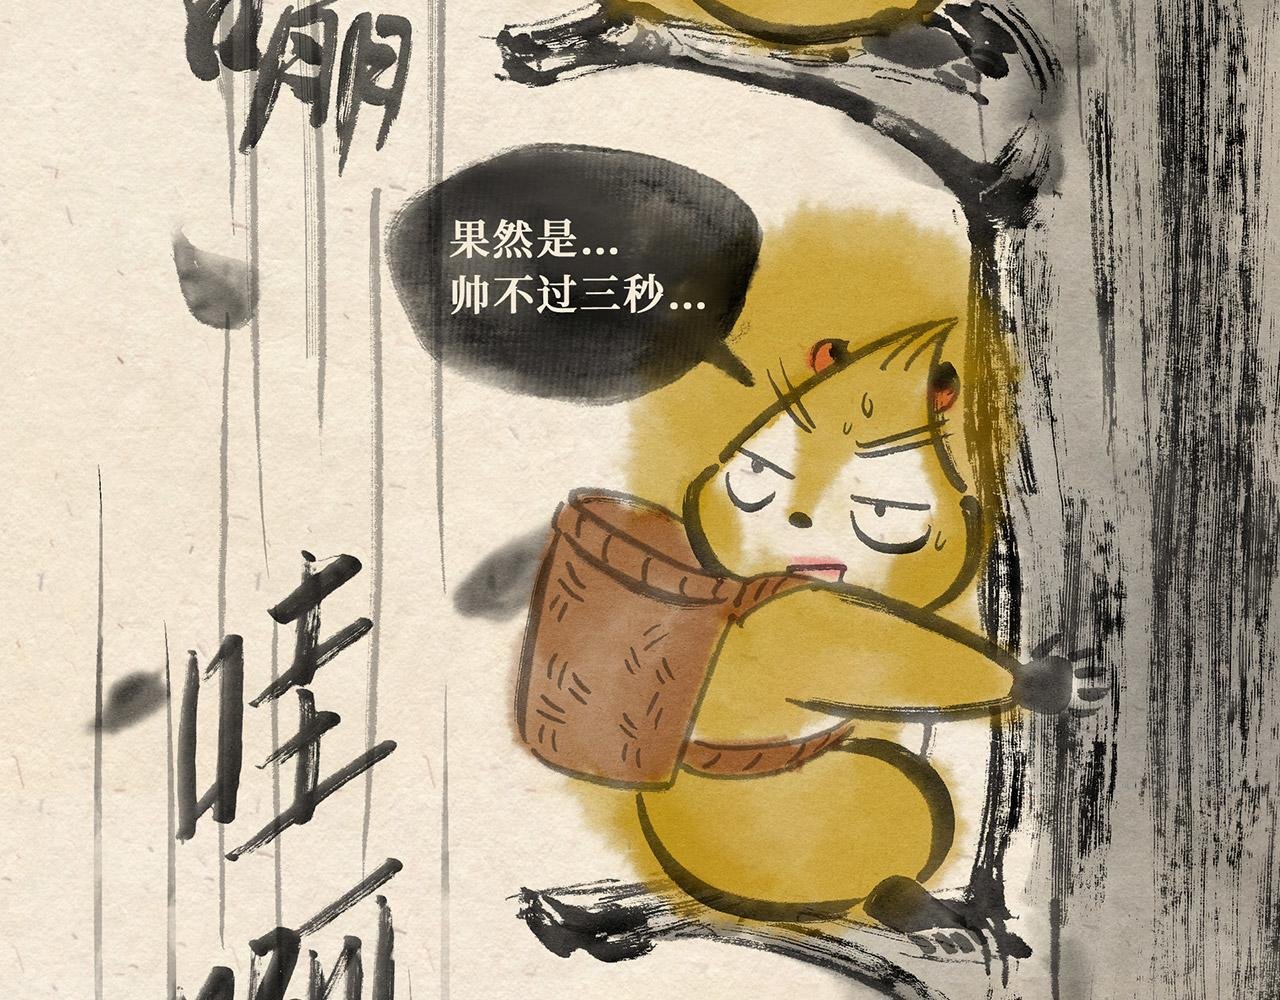 果然是...
帅不过三秒...
哇